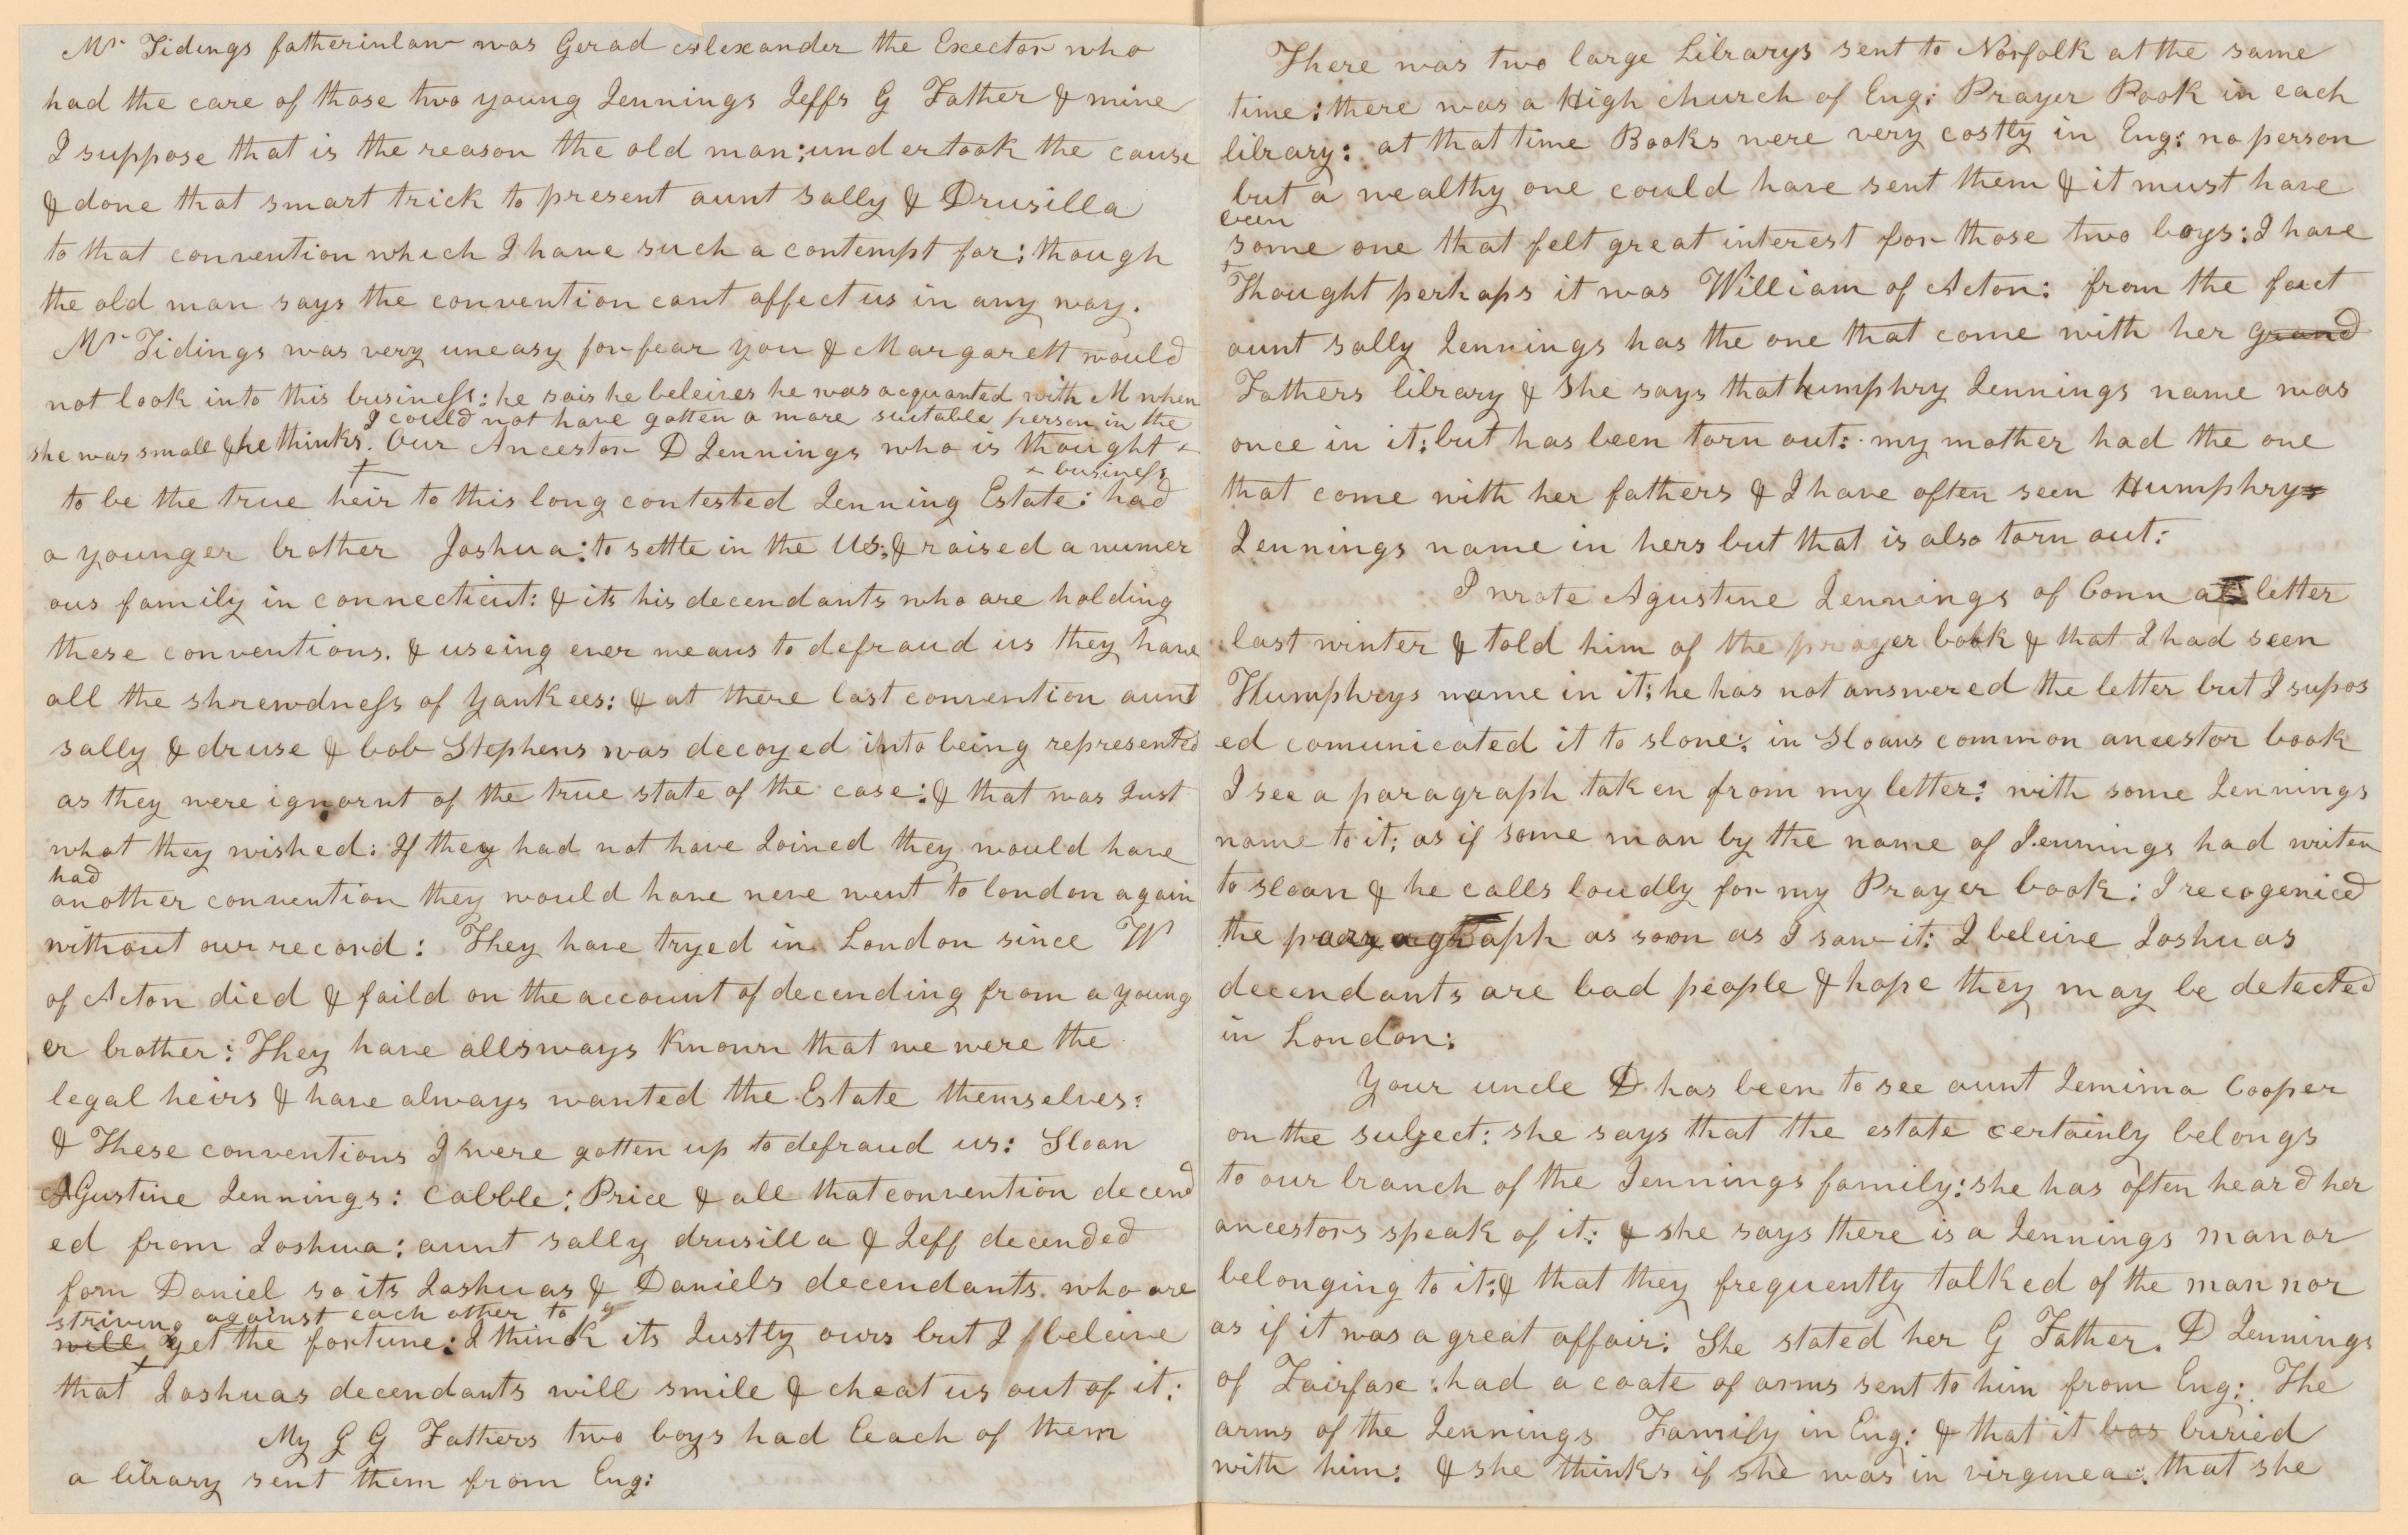 Mr Tidings fatherinlaw was Gerad Alexander the Exector who
had the care of those two young Jennings Jeffs G Father & mine
I suppose that is the reason the old man; undertook the cause
& done that smart trick to present aunt Sally & Drusilla
to that convention which I have such a contempt for; though
the old man says the convention cant affect us in any way.
Mr Tidings was very uneasy for fear you & Margarett would
not look into this business: he sais he beleives he was acquanted with M when
I could not have gotten a more suitable person in the
she was small & he thinks. Our Ancestor D Jennings who is thought
+ business
to be the true heir to this long contested Jenning Estate: had
a younger brother Joshua; to settle in the US; & raised a numer
ous family in connecticut: & its his decendants who are holding
these conventions. & useing ever means to defraud us they have
all the shrewdness of Yankees: & at there last convention aunt
sally & druse & bob Stephens was decoyed into being represented
as they were ignornt of the true state of the case: & that was Just
what they wished: If they had not have Joined they would have
had
another convention they would have neve went to london again
without our record: They have tryed in London since W
of Acton died & faild on the account of decending from a young
er brother: They have allsways known that we were the
legal heirs & have always wanted the Estate themselves:
& These conventions I were gotten up to defraud us: Sloan
AGustine Jennings: Cabble: Price & all that convention decend
ed from Joshua: aunt sally drusilla & Jeff decended
form Daniel so its Joshuas & Daniels decendants. who are
striving against each other to g
will get the fortune: I think its Justly ours but I beleive
that Joshuas decendants will smile & cheat us out of it:
My G G Fathers two boys had Eeach of them
a library sent them from Eng:
There was two large Librarys sent to Norfolk at the same
time: there was a High church of Eng: Prayer Book in each
library: at that time Books were very costly in Eng: no person
but a wealthy one could have sent them & it must have
been
some one that felt great interest for those two boys: I have
Thought perhaps it was William of Acton: from the fact
aunt sally Jennings has the one that come with her grand
Fathers library & she says that humphry Jennings name was
once in it; but has been torn out: my mother had the one
that come with her fathers & I have often seen Humphrys
Jennings name in hers but that is also torn out:
I wrote Agustine Jennings of Conn a letter
last winter & told him of the prayer book & that I had seen
Humphrys name in it; he has not answered the letter but I supos
ed comunicated it to slone; in Sloans common ancestor book
I see a paragraph taken from my letter: with some Jennings
name to it; as if some man by the name of Jennings had writen
to sloan & he calls loudly for my Prayer book: I recogeniced
the paragraph as soon as I saw it; I beleive Joshuas
decendants are bad people & hope they may be detected
in London:
Your uncle D has been to see aunt Jemima Cooper
on the subject: she says that the estate certainly belongs
to our branch of the Jennings family: she has often heard her
ancestors speak of it: & she says there is a Jennings manor
belonging to it: & that they frequently talked of the mannor
as if it was a great affair: She stated her G Father. D Jennings
of Fairfax: had a coate of arms sent to him from Eng: The
arms of the Jennings Family in Eng: & that it was buried
with him: & she thinks if she was in virginea: that she